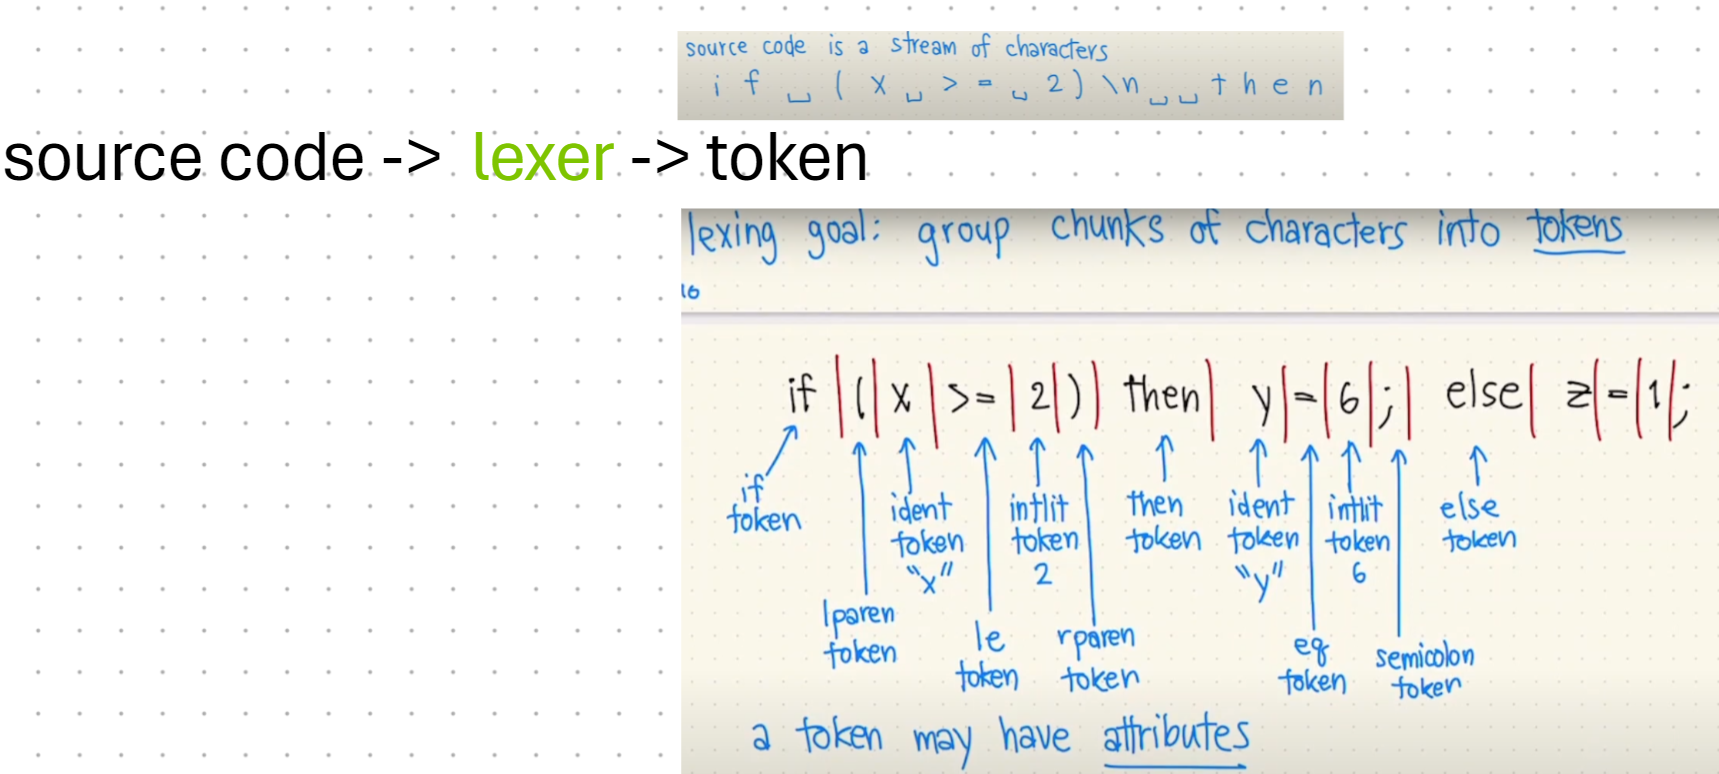 source code is a stream of characters
i f ␣ ( x ␣ > = ␣ 2 ) \n ␣ ␣ t h e n
source code -> lexer -> token
lexing goal: group chunks of characters into tokens
16
if | ( | x | >= | 2 | ) | then | y | = | 6 | ; | else | z | = | 1 | ;
if token
lparen token
ident token "x"
le token
intlit token 2
rparen token
then token
ident token "y"
eq token
intlit token 6
semicolon token
else token
a token may have attributes